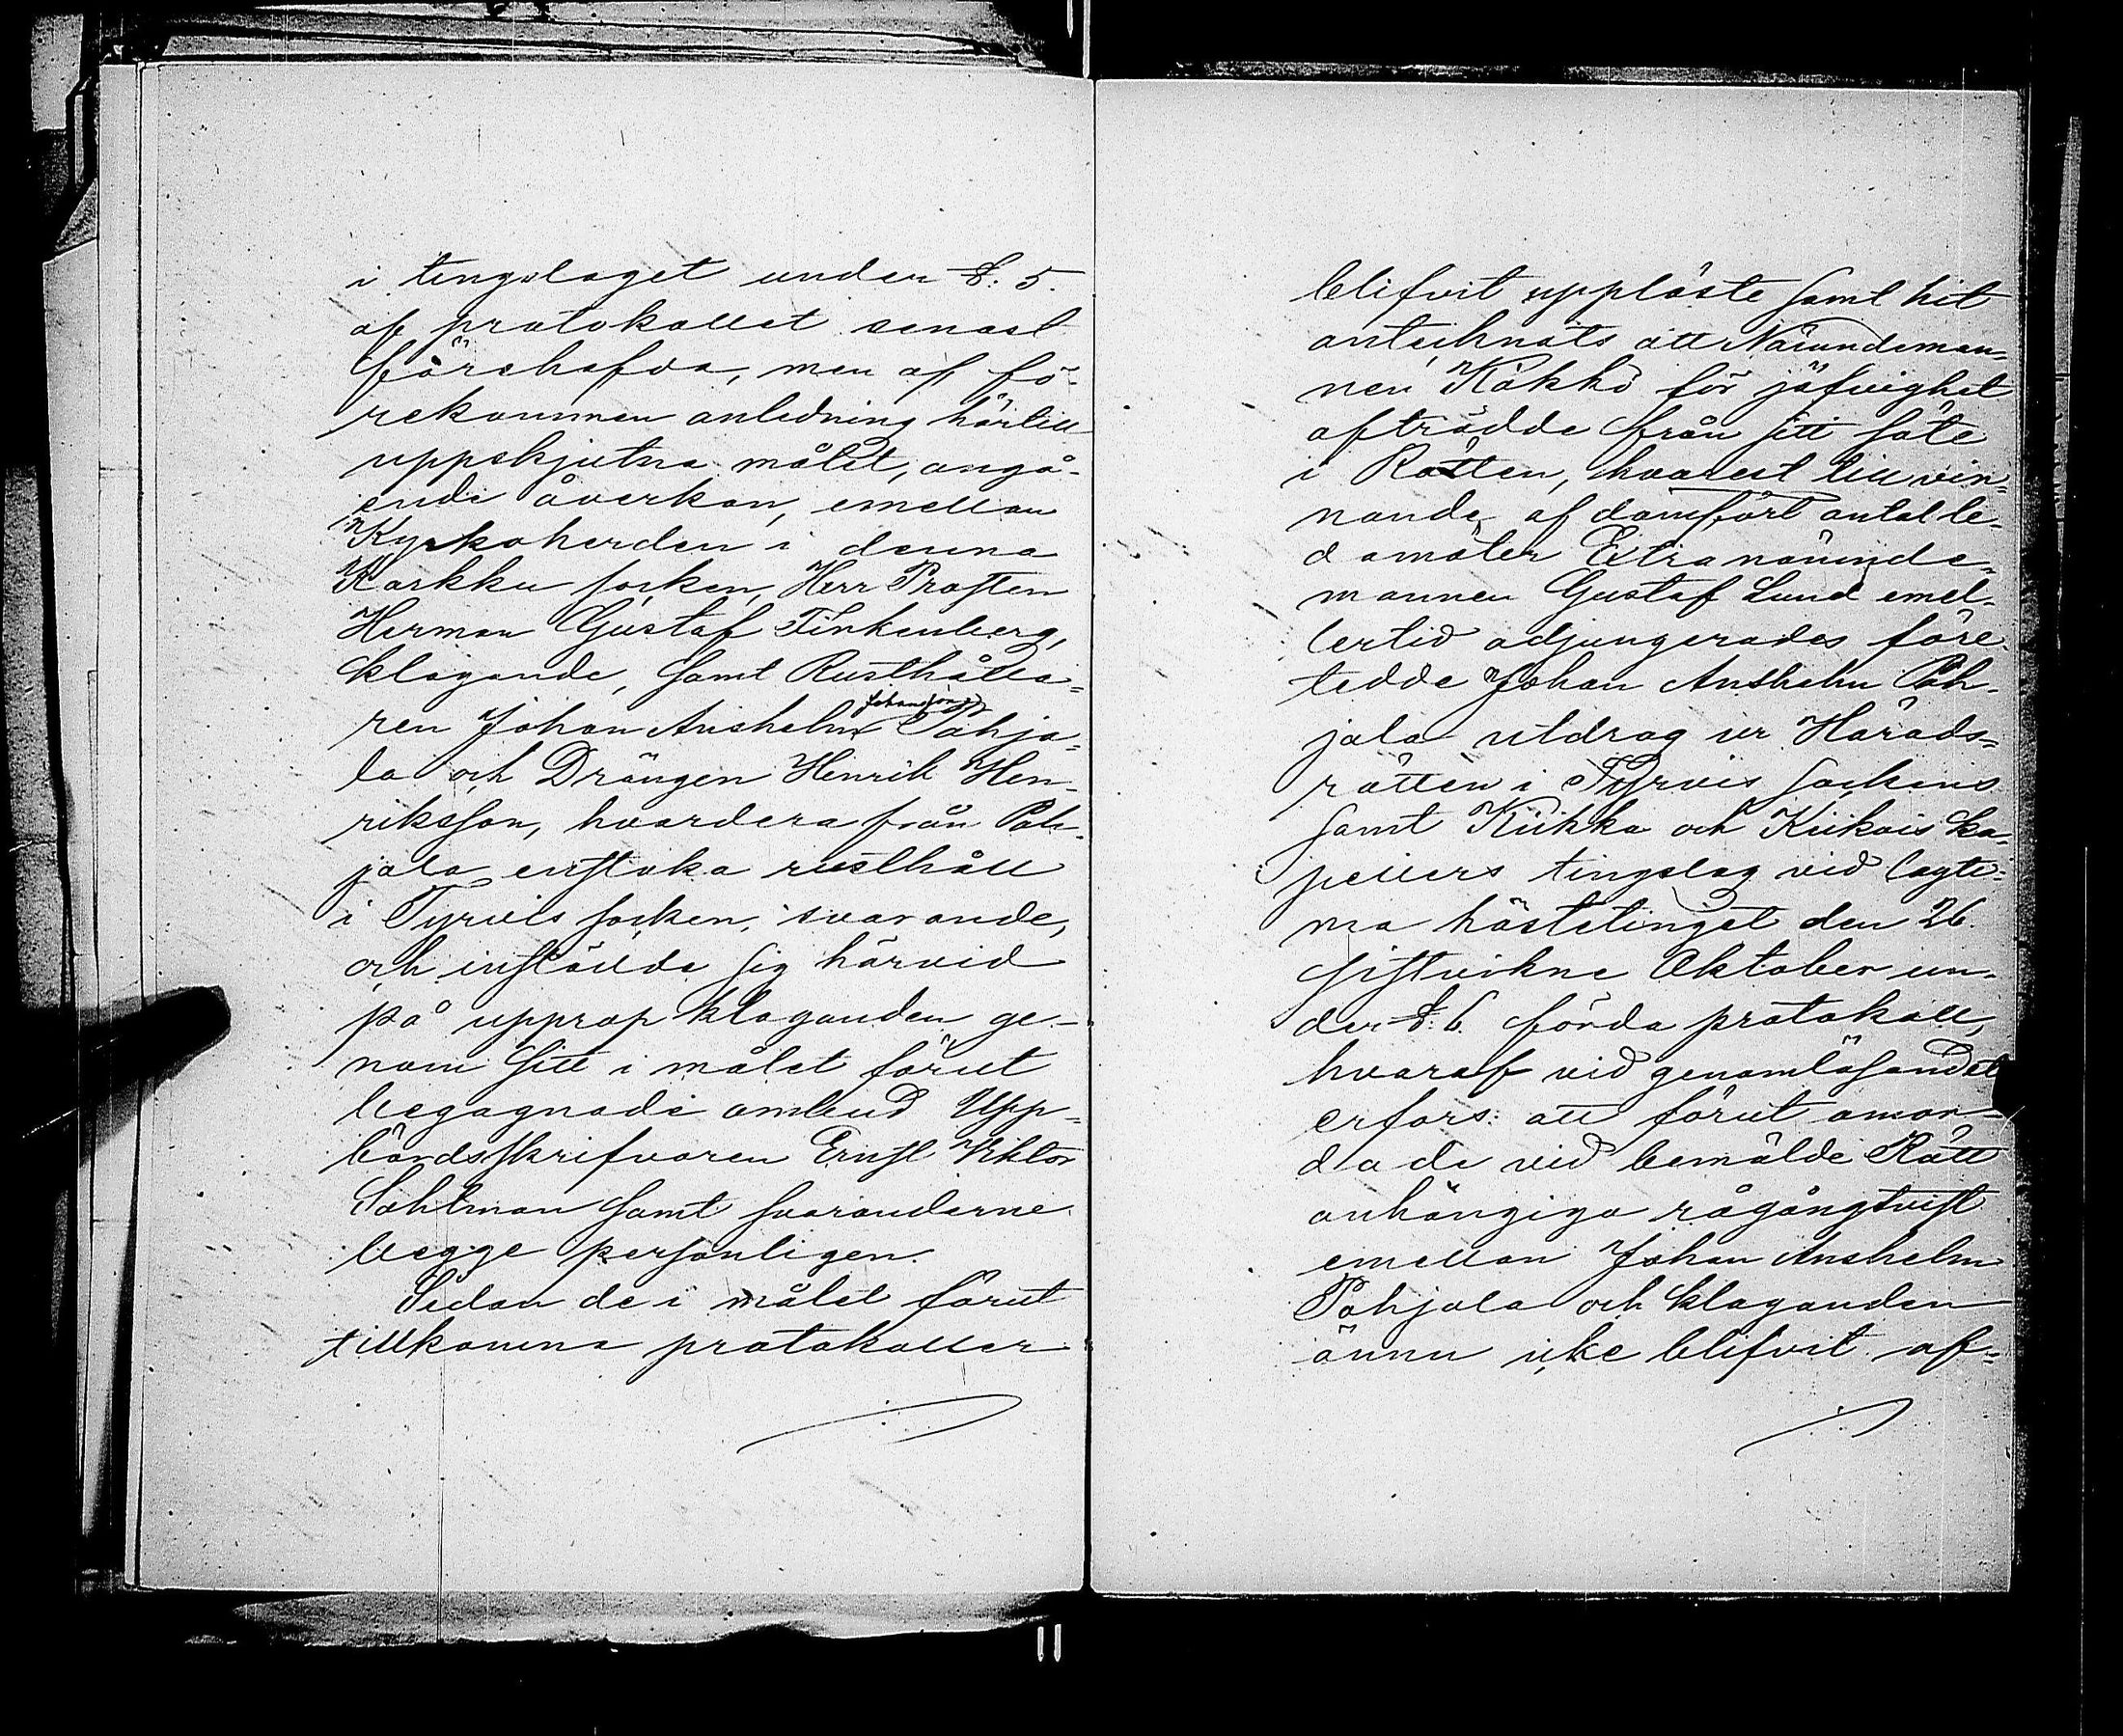 i tingslaget under §. 5.
af protokollet senast
förehafda, men af fö-
rekommen anledning härtill
uppskjutna målet, angå-
ende åverkan, emellan
Kyrkoherden i denna
Karkku socken, Herr Prosten
Herman Gustaf Tinkenberg,
klagande, samt Rusthålla-
ren Johan Anshelm Johansson Pohja-
la och Drängen Henrik Hen-
riksson, hvardera från Poh-
jala enstaka rusthåll
i Tyrvis socken, svarande,
och instälde sig härvid
på upprop klaganden ge-
nom sitt i målet förut
begagnade ombud Upp-
bördsskrifvaren Ernst Viktor
Sahlman samt svaranderne
begge personligen.
Sedan de i målet förut
tillkomna protokoller
blifvit uppläste samt hit
antecknats att Nämndeman-
nen Kökkö för jäfvighet
afträdde från sitt säte
i Rätten, hvarest till vin-
nande af domfört antal le-
damöter Extra nämnde-
mannen Gustaf Lund emel-
lertid adjungerades före-
tedde Johan Anshelm Poh-
jala utdrag ur Härads-
rätten i Tyrvis sockens
samt Kiikka och Kiikois ka-
pellers tingslag vid lagti-
ma höstetinget den 26
sistvikne Oktober un-
der §. 6. förda protokoll,
hvaraf vid genomläsandet
erfors: att förut omor-
dade vid bemälde Rätt
anhängiga rågångstvist
emellan Johan Anshelm
Pohjala och klaganden
ännu icke blifvit af-